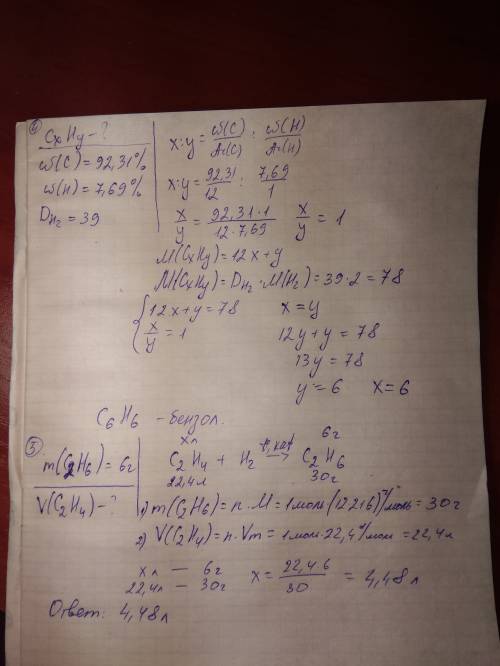 6) CxHy - ?
ω(C) = 92,31%
ω(H) = 7,69%
D H₂ = 39
x:y = ω(C)/Ar(C) : ω(H)/Ar(H)
x:y = 92,31/12 : 7,69/1
x/y = 92,31·1/12·7,69 x/y = 1
M(CxHy) = 12x+y
M(CxHy) = D H₂ · M(H₂) = 39·2 = 78
{12x+y = 78 x = y
x/y = 1 12y+y = 78
13y = 78
y = 6 x = 6
C₆H₆ - бензол.
5) m(C₂H₆) = 6г
V(C₂H₄) - ?
xл 6г
C₂H₄ + H₂ t, кат → C₂H₆
22,4л 30г
1) m(C₂H₆) = n·M = 1моль·(12·2+6)г/моль = 30г
2) V(C₂H₄) = n·Vm = 1моль·22,4л/моль = 22,4л
xл — 6г x = 22,4·6/30 = 4,48л
22,4л — 30г
Ответ: 4,48л